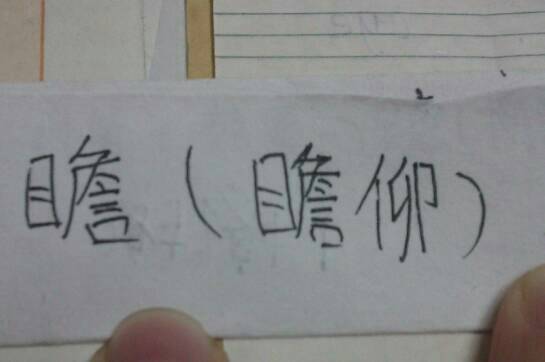 瞻（瞻仰）